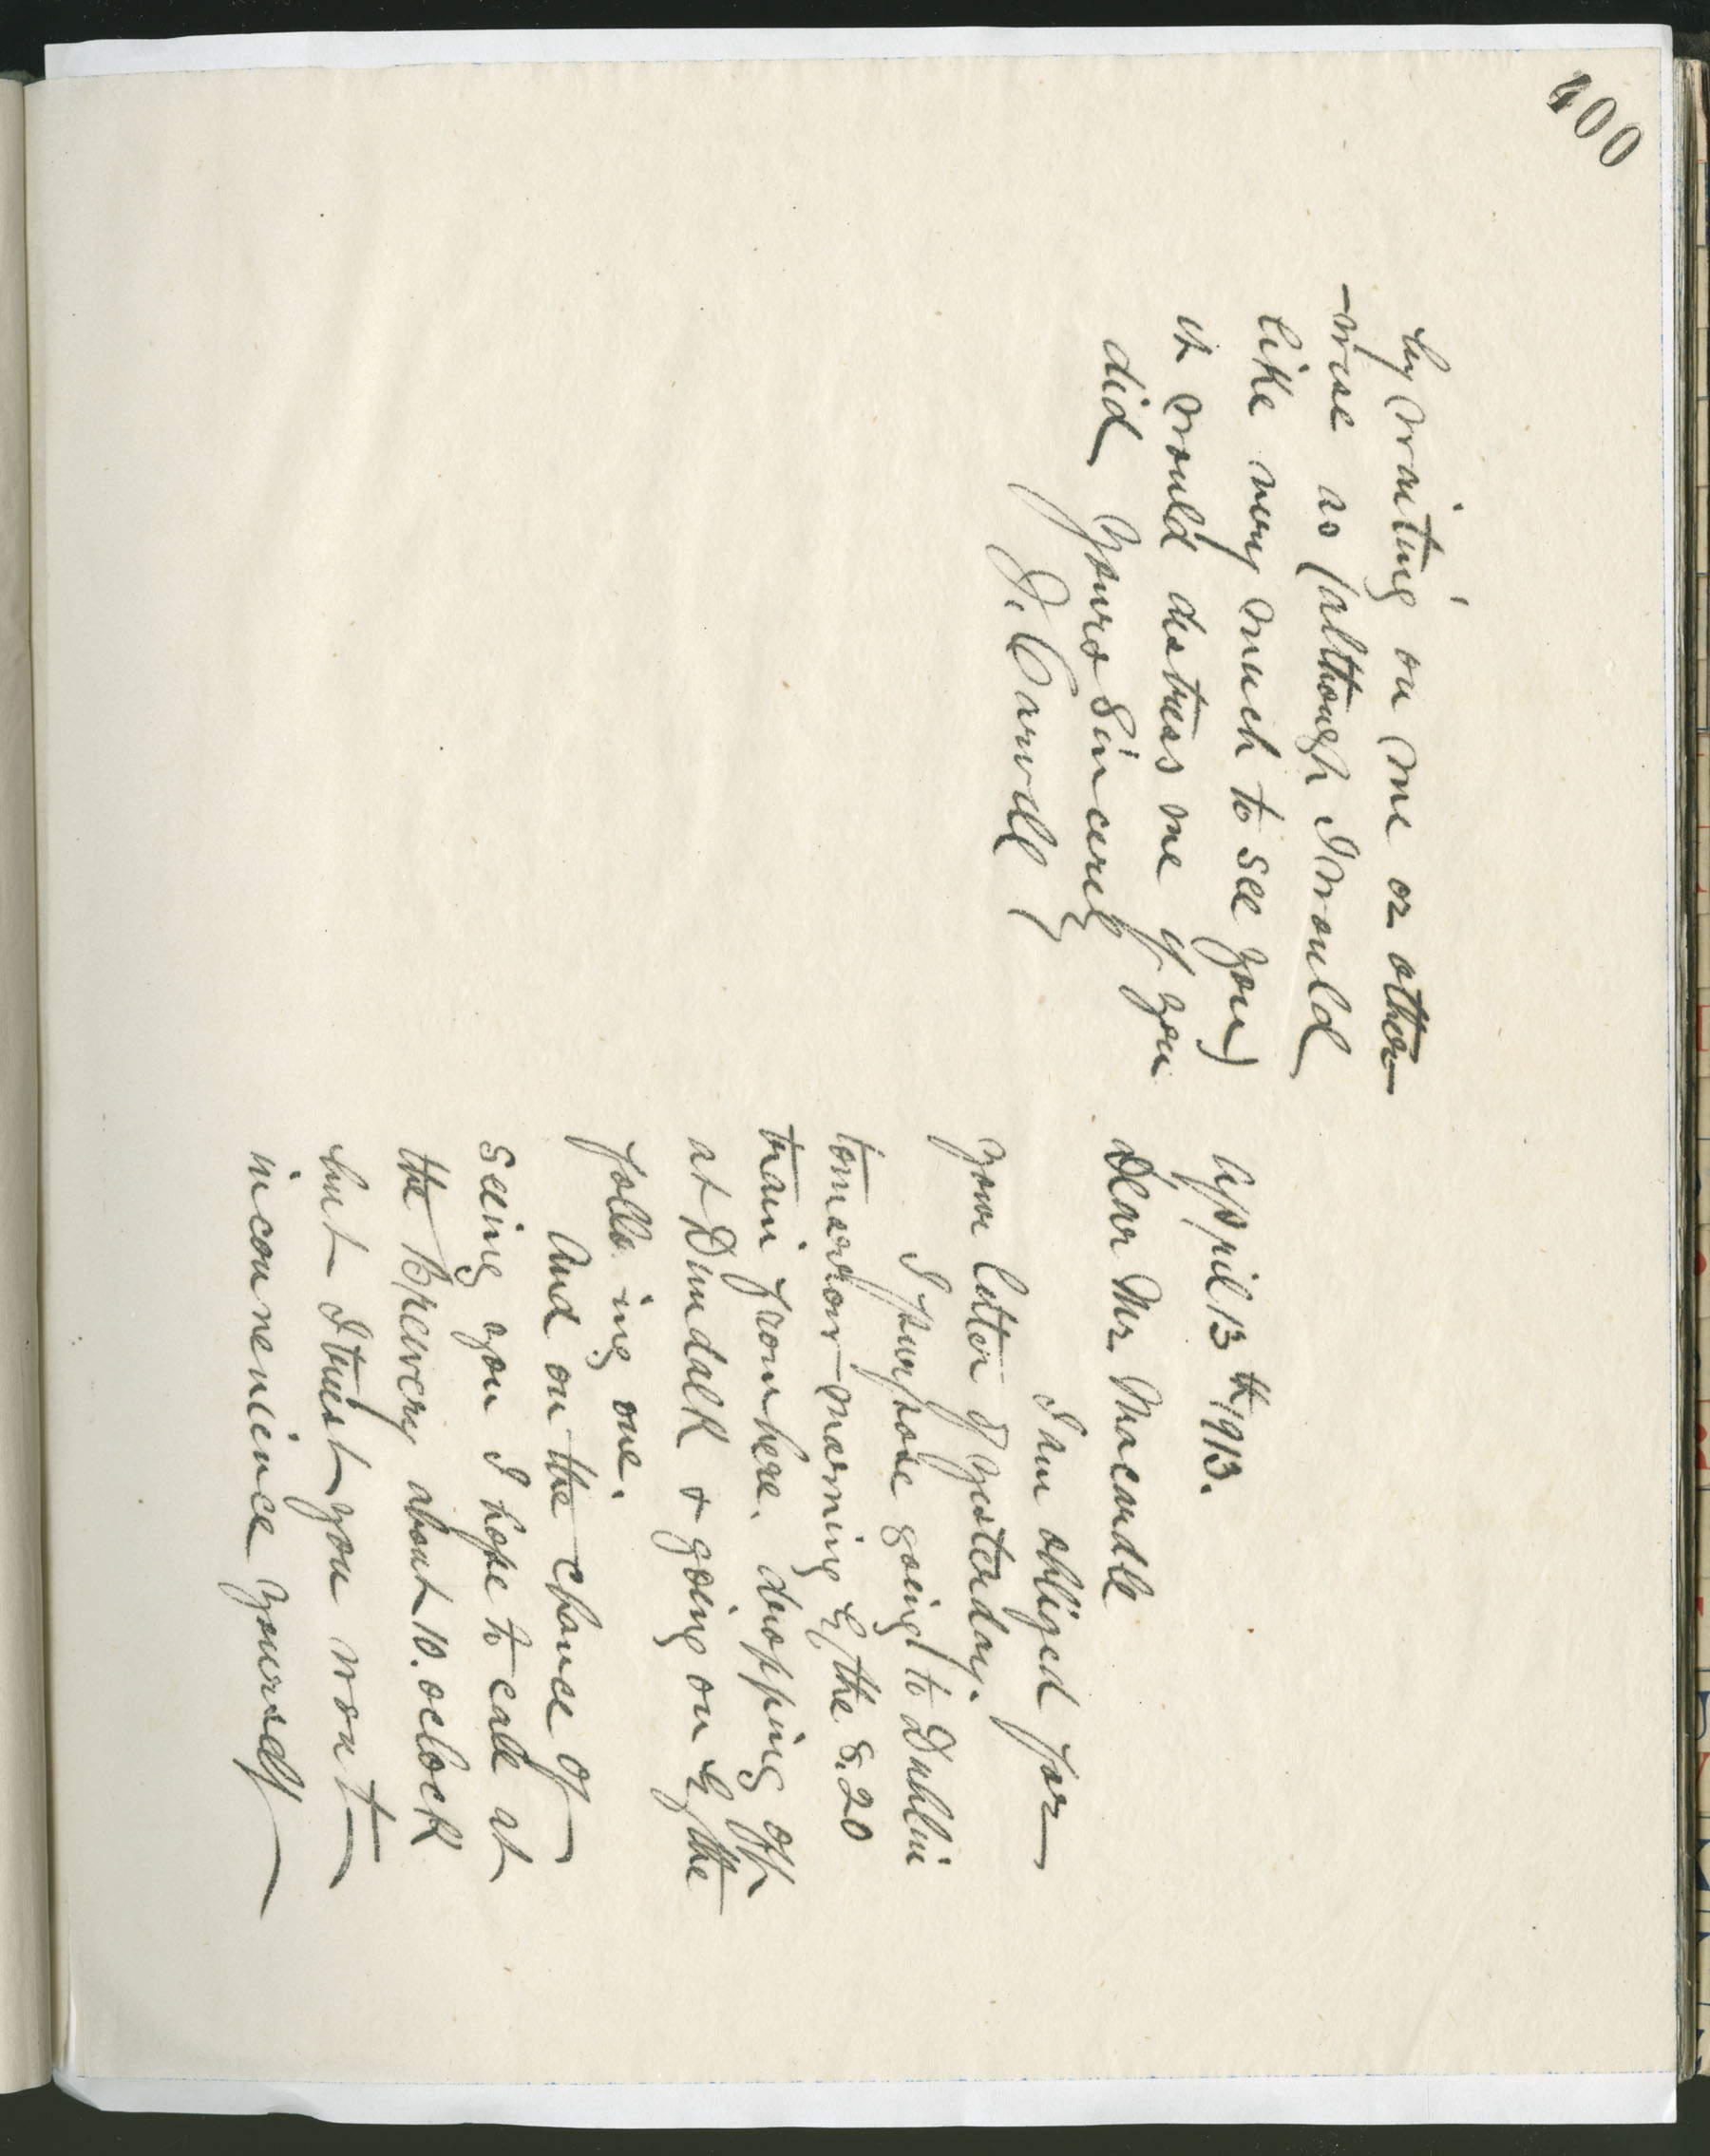 400
April 13th 1913.
Dear Mr. Macardle
I am obliged for
your letter of yesterday.
I purpose going to Dublin
tomorrow morning by the 8.20
train from here. dropping off
at Dundalk + going on by the
follo ing one.
And on the chance of
seeing you I hope to call at
the Brewery about 10. oclock
but I trust you wont
inconvenience yourself
by waiting on me or other
-wise as (although I would
like very much to see you)
it would distress me if you
did Yours Sincerely
J. Carvill